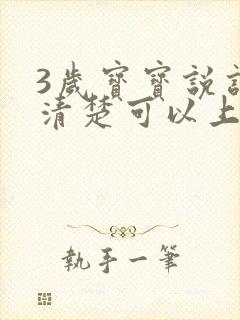 3歲寶寶說
清楚可以上
執手一筆